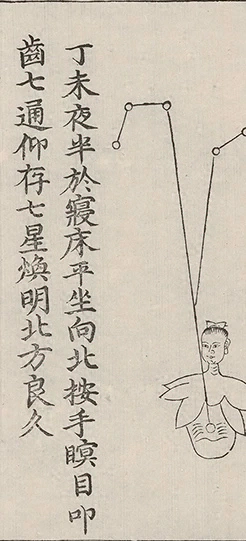 丁未夜半於寢床平坐向北按手瞑目叩
齒七通仰存七星煥明北方良久